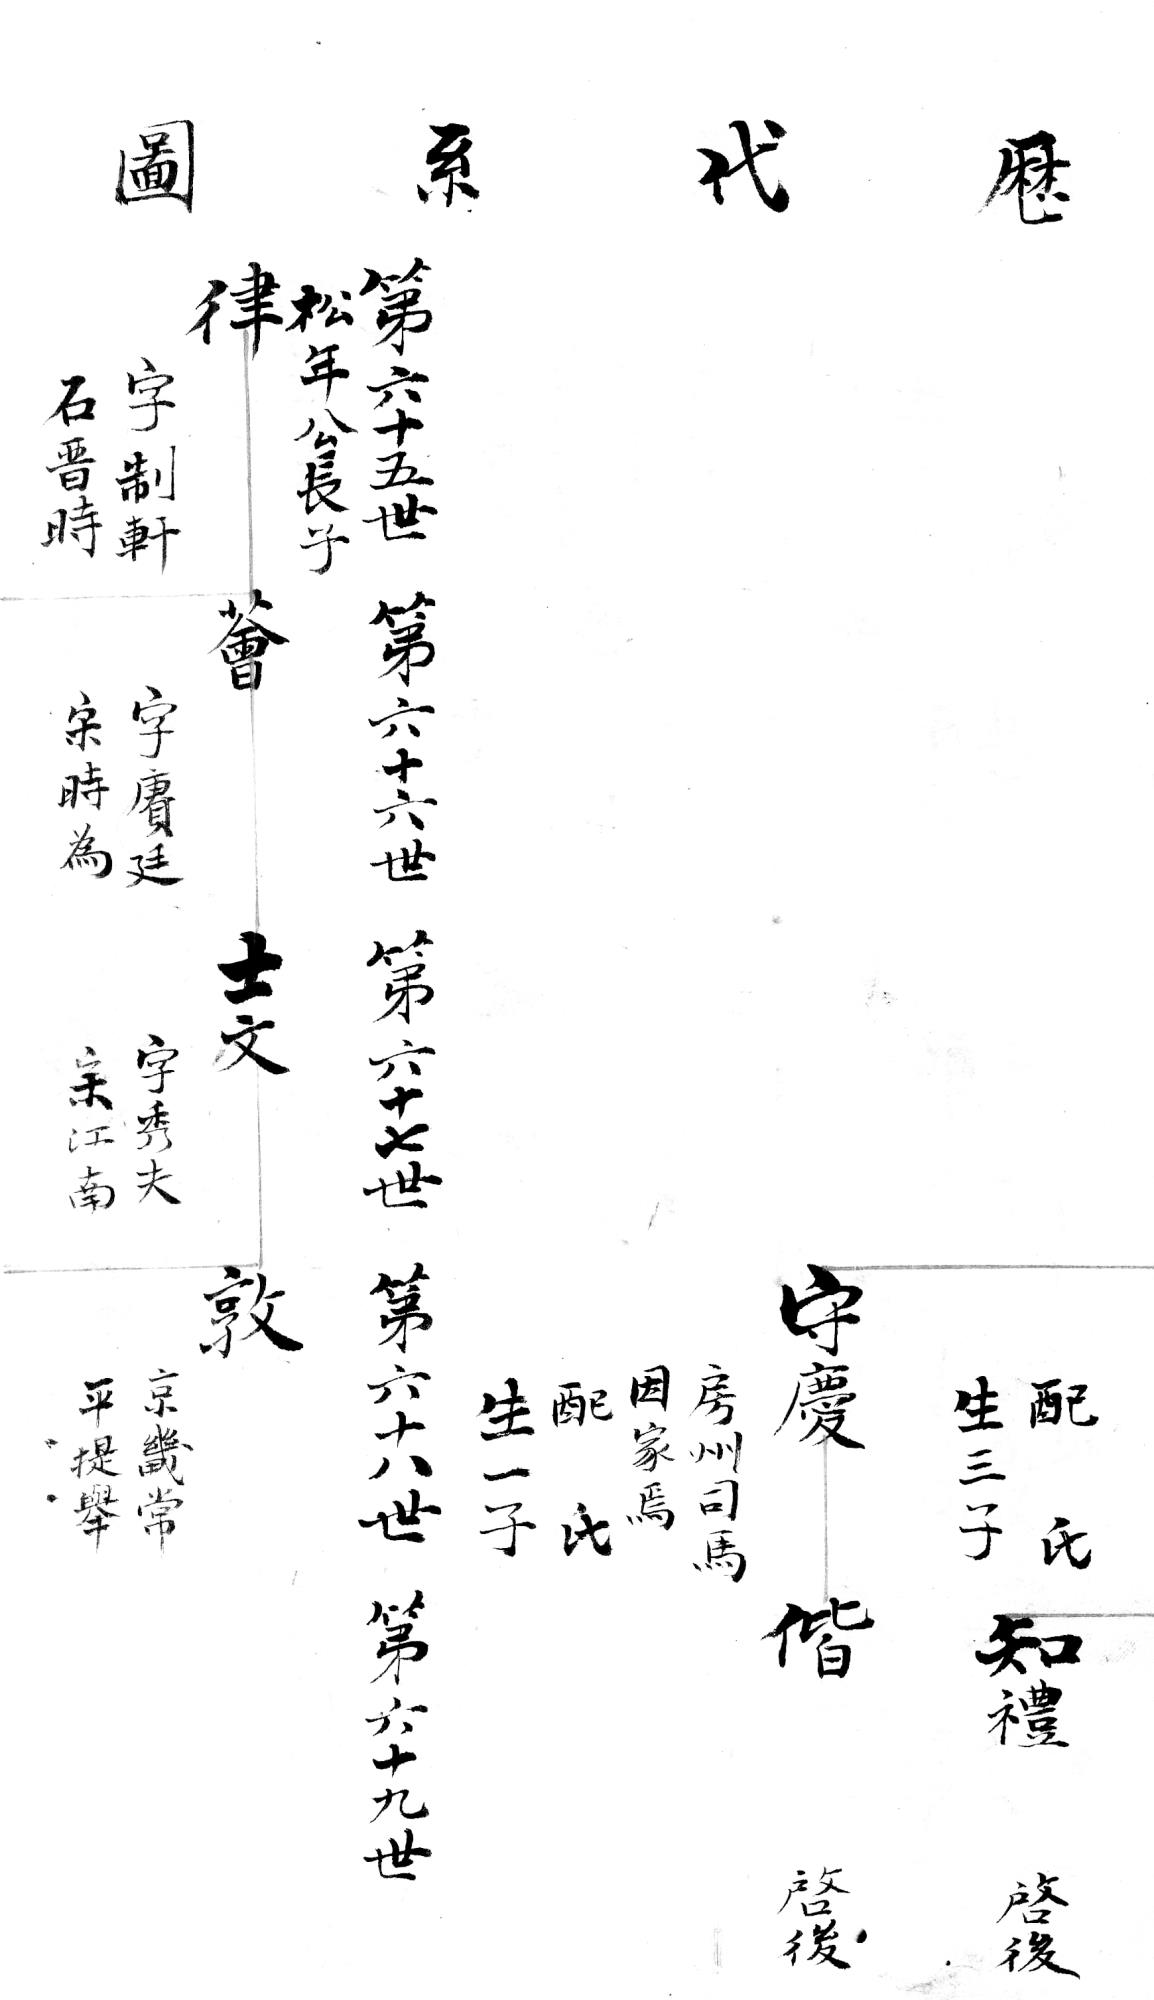 歷代系圖
配氏
生三子
知禮
啓後
守慶
偕
啓後
房州司馬
因家焉
配氏
生一子
第六十五世
第六十六世
第六十七世
第六十八世
第六十九世
松年公長子
律
薈
士文
敦
字制軒
石晋時
字賡廷
宋時為
字秀夫
宋江南
京畿常
平提舉